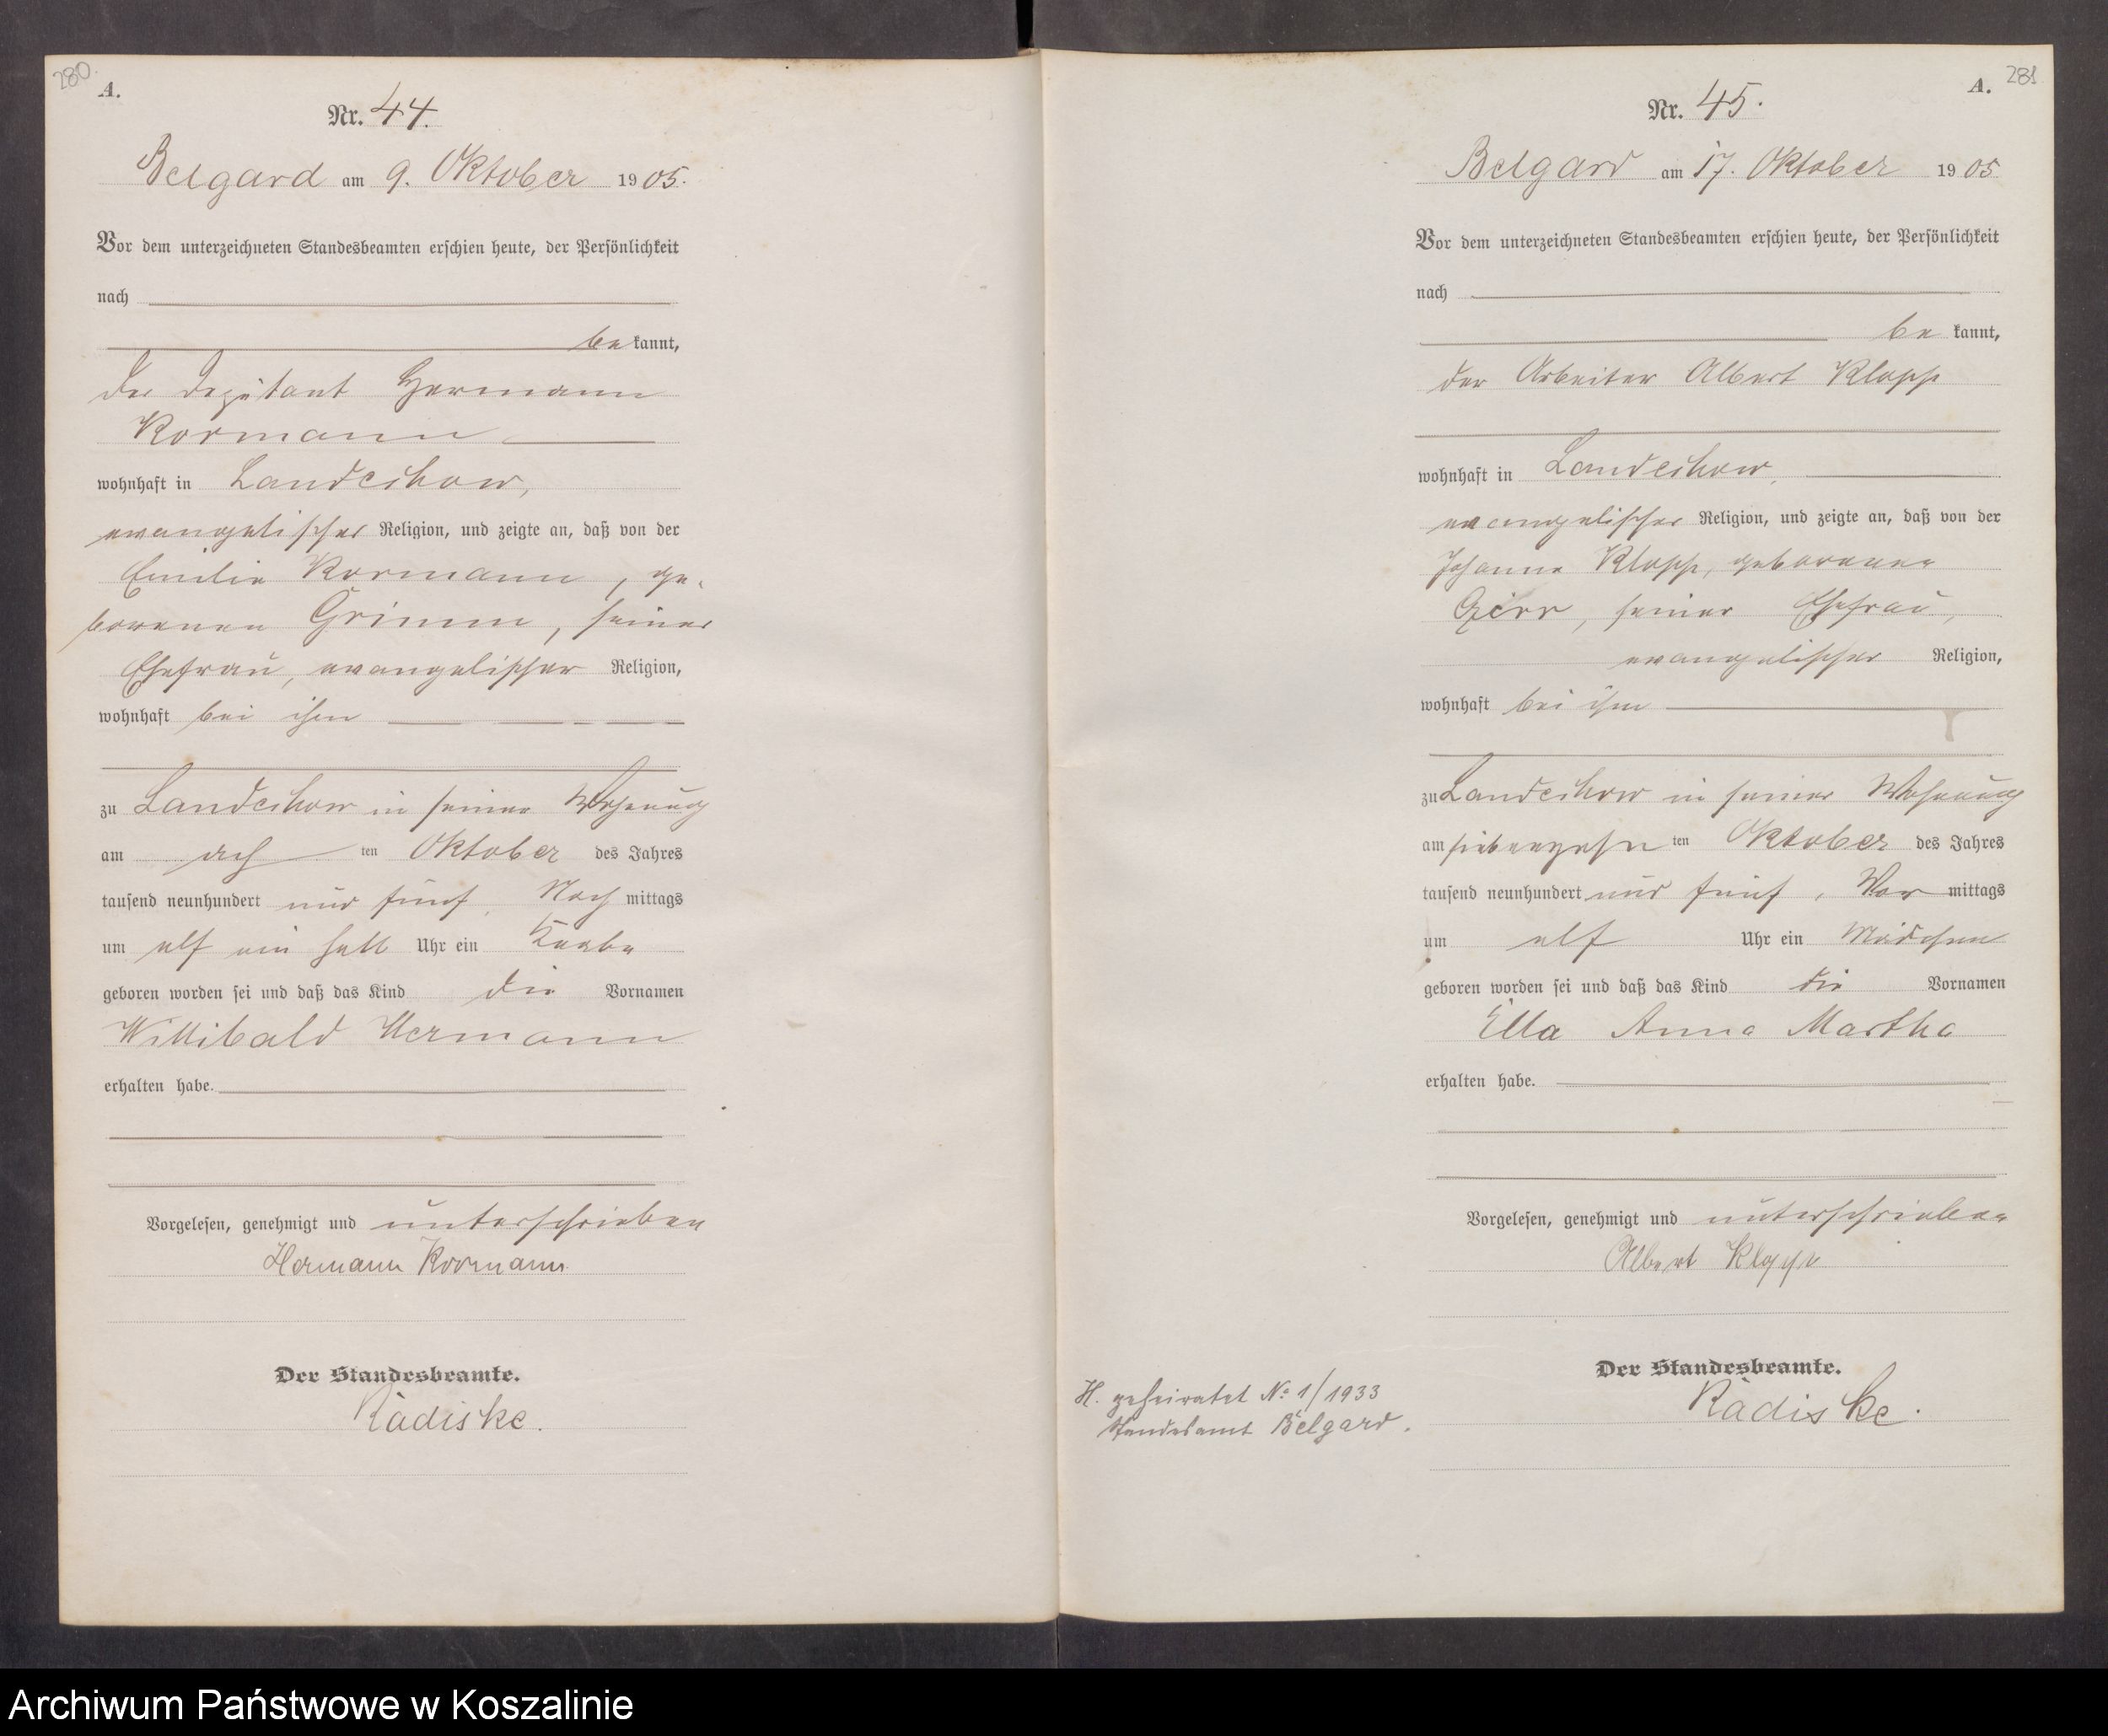 280.
A.
Nr. 44.
Belgard am 9. Oktober 1905.
Vor dem unterzeichneten Standesbeamten erschien heute, der Persönlichkeit
nach
be kannt,
der Deputant Hermann
Kormann
wohnhaft in Landechow,
evangelischer Religion, und zeigte an, daß von der
Emilie Kormann, ge-
borenen Grimm, seiner
Ehefrau, evangelischer Religion,
wohnhaft bei ihm
zu Landechow in seiner Wohnung
am ach ten Oktober des Jahres
tausend neunhundert und fünf, Nach mittags
um elf ein halb Uhr ein Knabe
geboren worden sei und daß das Kind die Vornamen
Willibald Hermann
erhalten habe.
Vorgelesen, genehmigt und unterschrieben
Hermann Kormann
Der Standesbeamte.
Radiske.
281
A.
Nr. 45.
Belgard am 17. Oktober 1905
Vor dem unterzeichneten Standesbeamten erschien heute, der Persönlichkeit
nach
be kannt,
der Arbeiter Albert Klopp
wohnhaft in Landechow,
evangelischer Religion, und zeigte an, daß von der
Johanne Klopp, geborenen
seiner Ehefrau,
evangelischer Religion,
wohnhaft bei ihm
zu Landechow in seiner Wohnung
am siebenzehn ten Oktober des Jahres
tausend neunhundert und fünf, Vor mittags
um elf Uhr ein Mädchen
geboren worden sei und daß das Kind die Vornamen
Ella Anna Martha
erhalten habe.
Vorgelesen, genehmigt und unterschrieben
Albert Klopp
Der Standesbeamte.
Radiske.
H. geheiratet No 1/1933
Standesamt Belgard.
Archiwum Państwowe w Koszalinie